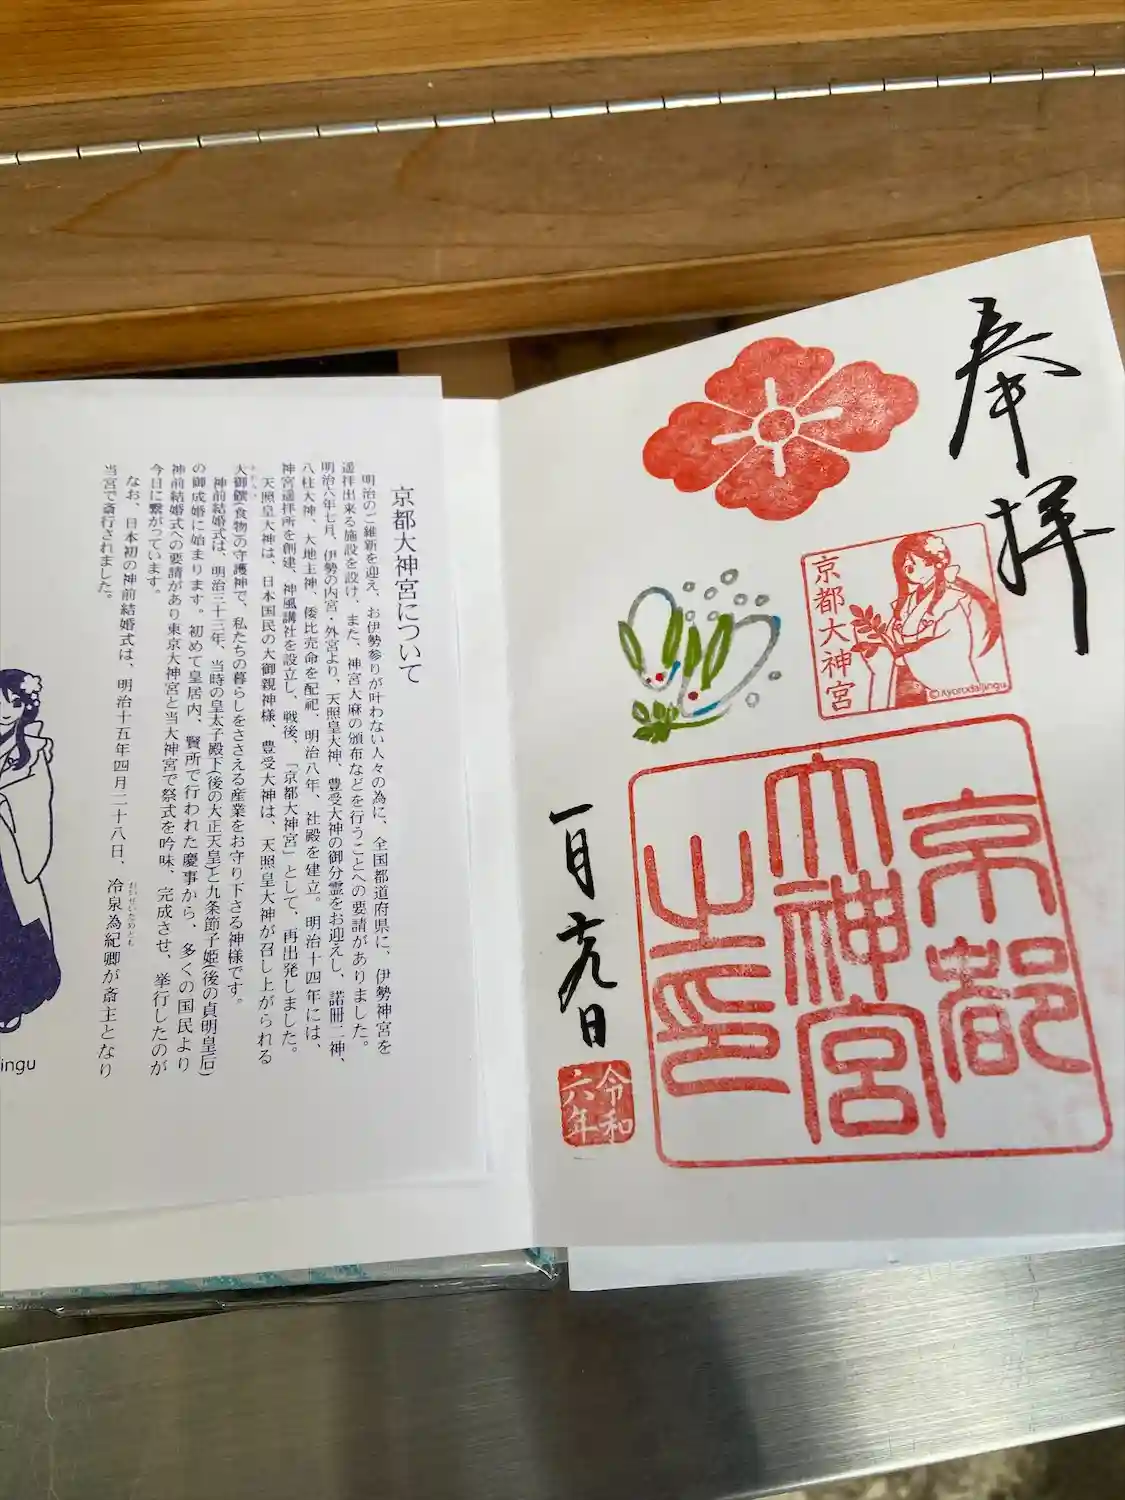 奉拝
京都大神宮
©Kyotodaijingu
京都
大神宮
之印
一月十九日
令和
六年
京都大神宮について
明治のご維新を迎え、お伊勢参りが叶わない人々の為に、全国都道府県に、伊勢神宮を
遥拝出来る施設を設け、また、神宮大麻の頒布などを行うことへの要請がありました。
明治六年七月、伊勢の内宮・外宮より、天照皇大神、豊受大神の御分霊をお迎えし、諾冊二神、
八柱大神、大地主神、倭比売命を配祀、明治八年、社殿を建立。明治十四年には、
神宮遥拝所を創建、神風講社を設立し、戦後、「京都大神宮」として、再出発しました。
天照皇大神は、日本国民の大御親神様、豊受大神は、天照皇大神が召し上がられる
大御饌(食物)の守護神で、私たちの暮らしをささえる産業をお守り下さる神様です。
神前結婚式は、明治三十三年、当時の皇太子殿下(後の大正天皇)と九条節子姫(後の貞明皇后)
の御成婚に始まります。初めて皇居内、賢所で行われた慶事から、多くの国民より
神前結婚式への要請があり東京大神宮と当大神宮で祭式を吟味、完成させ、挙行したのが
今日に繋がっています。
なお、日本初の神前結婚式は、明治十五年四月二十八日、冷泉為紀卿が斎主となり
当宮で斎行されました。
ingu